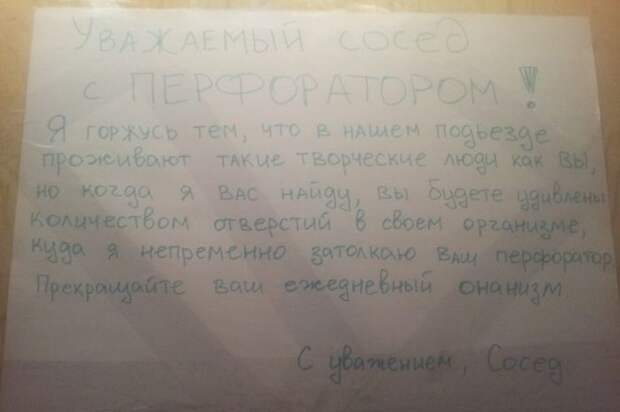 Уважаемый сосед
с ПЕРФОРАТОРОМ!
Я горжусь тем, что в нашем подъезде
проживают такие творческие люди как вы,
но когда я вас найду, вы будете удивлены
количеством отверстий в своем организме,
куда я непременно затолкаю ваш перфоратор.
Прекращайте ваш ежедневный онанизм.
С уважением, Сосед.